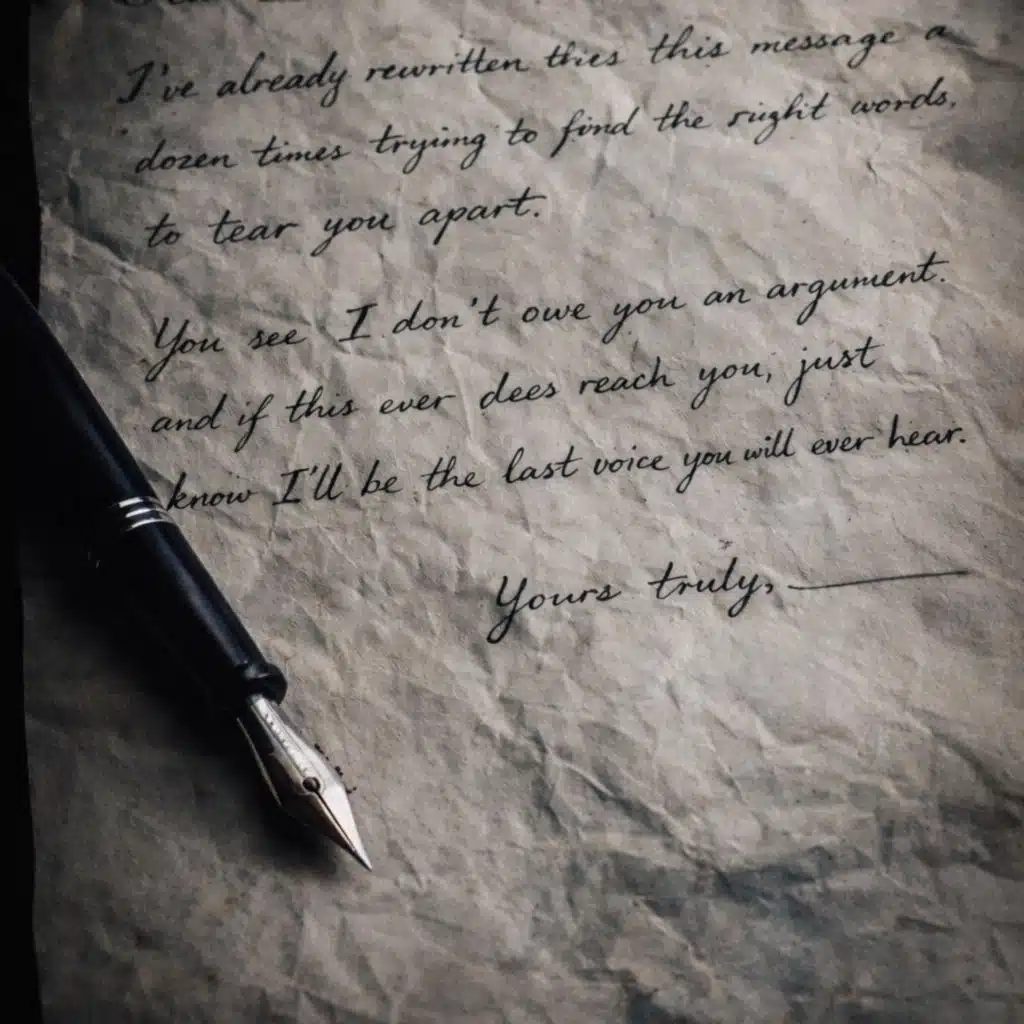 I've already rewritten thies this message a
dozen times tryimg to find the right words.
to tear you apart.
You see I don't owe you an argument.
and if this ever dees reach you, just
know I'll be the last voice you will ever hear.
Yours truly,